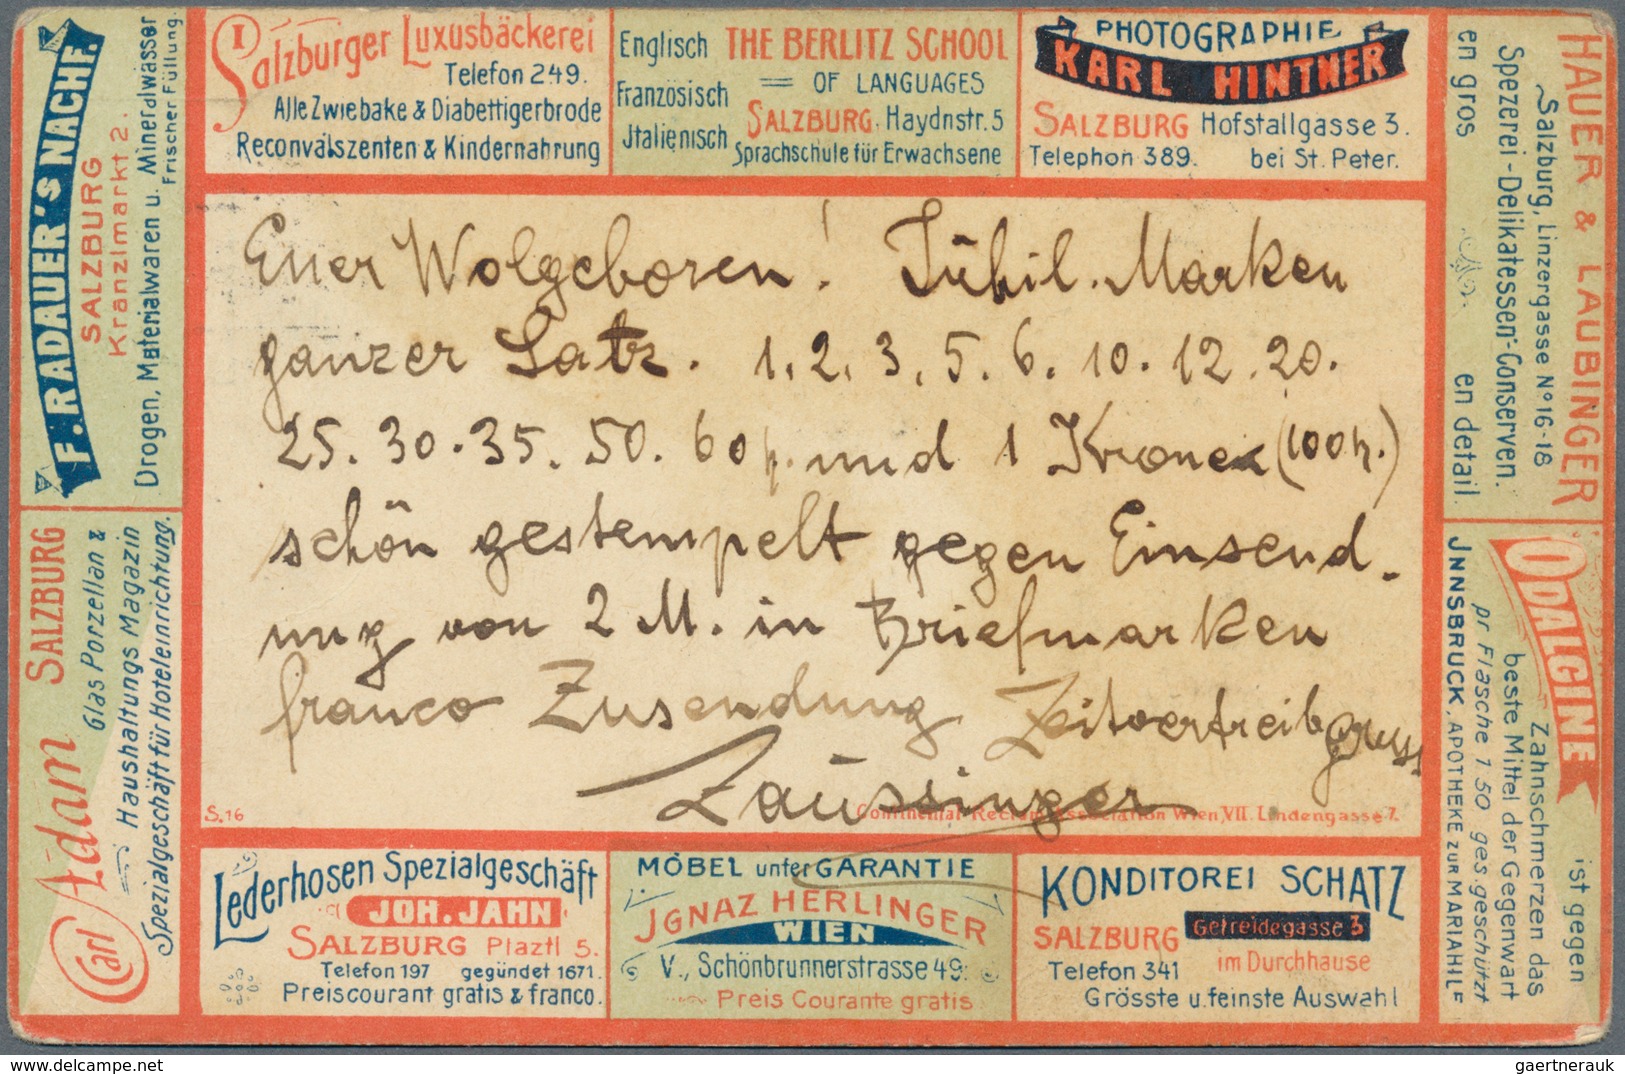 I
Salzburger Luxusbäckerei
Telefon 249.
Alle Zwiebacke & Diabettigerbrode
Reconvalszenten & Kindernahrung
Englisch
Französisch
Jtalienisch
THE BERLITZ SCHOOL
OF LANGUAGES
SALZBURG. Haydnstr. 5
Sprachschule für Erwachsene
PHOTOGRAPHIE
KARL HINTNER
SALZBURG Hofstallgasse 3.
Telephon 389. bei St. Peter.
F. RADAUER'S NACHF.
SALZBURG
Kranzlmarkt 2.
Drogen, Materialwaren u. Mineralwässer
Frischer Füllung.
HAUER & LAUBINGER
Salzburg, Linzergasse No 16-18
Spezerei-Delikatessen-Conserven.
en gros en detail
Euer Wolgeboren! Jubil. Marken
ganzer Satz. 1. 2. 3. 5. 6. 10. 12. 20.
25. 30. 35. 50. 60 h. und 1 Krone (100 h.)
schön gestempelt gegen Einsend-
ung von 2 M. in Briefmarken
franco Zusendung Zeitvertreibgruss
Zaussinger
S.16
Continental Reclam Association Wien, VII. Lindengasse 7.
Carl Adam SALZBURG
Glas Porzellan &
Haushaltungs Magazin
Spezialgeschäft für Hoteleinrichtung.
ODALGINE
ist gegen
Zahnschmerzen das
beste Mittel der Gegenwart
pr Flasche 1 50 ges. geschützt
JNNSBRUCK, APOTHEKE ZUR MARIAHILF
Lederhosen Spezialgeschäft
JOH. JAHN
SALZBURG Plaztl 5.
Telefon 197 gegündet 1671.
Preiscourant gratis & franco.
MÖBEL unter GARANTIE
JGNAZ HERLINGER
WIEN
V., Schönbrunnerstrasse 49.
Preis Courante gratis
KONDITOREI SCHATZ
SALZBURG Getreidegasse 3
im Durchhause
Telefon 341
Grösste u. feinste Auswahl
www.delcampe.net
gaertnerauk